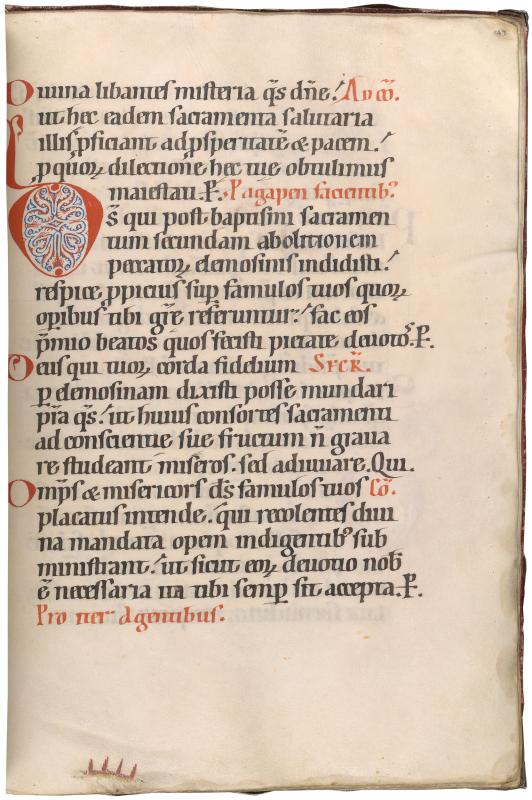 Diuina libantes misteria q̄s dn̄e. Ad cō.
ut hec eadem sacramenta salutaria
illis ꝓficiant ad ꝓsperitatē & pacem.
P ꝓ quoꝝ dilectione hec tue obtulimus
maiestati. P. Pagapen facientibꝰ
DS̄ qui post baptismi sacramen
tum secundam abolitionem
peccatoꝝ elemosinis indidisti.
respice ꝓpicius suꝑ famulos tuos quoꝝ
oꝑibus tibi gr̄e referuntur. fac eos
p̄mio beatos quos fecisti pietate deuotos. P.
Deus qui tuoꝝ corda fidelium Secr.
ꝑ elemosinam dixisti posse mundari
pr̄a q̄s. ut huius consortes sacramenti
ad conscientie sue fructum n̄ graua
re studeant miseros. sed adiuuare. Qui.
Omp̄s & misericors ds̄ famulos tuos Cō.
placatus intende. qui recolentes diui
na mandata opem indigentibꝰ sub
ministrant. ut sicut eoꝝ deuotio nob̄
ē necessaria ita tibi semꝑ sit accepta. P.
Pro iter agentibus.